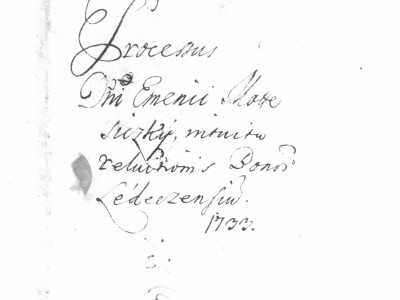 Processus
Dni Emenii Motte
sizky, intuitu
reluitionis Bonor
Lédeczensiu.
1733.
3.